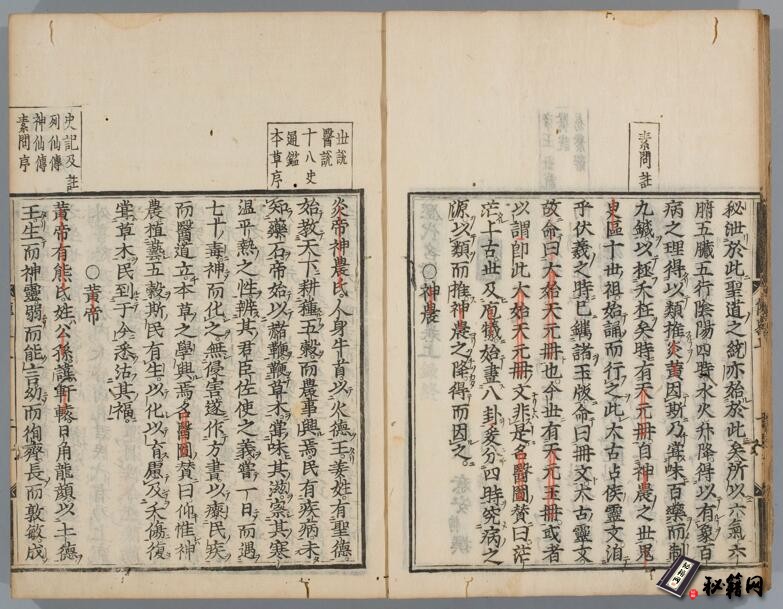 素問註
秘泄於此聖道之統亦始於此矣所以六氣六
腑五臟五行陰陽四時水火升降得以有象百
病之理得以類推炎黃因斯乃嘗味百藥而制
九鍼以拯夭枉矣時有天元冊自神農之世鬼
臾區十世祖始誦而行之此太古占候靈文洎
乎伏羲之時已鐫諸玉版命曰冊文太古靈文
故命曰太始天元冊也今世有天元玉冊或者
以謂即此太始天元冊文非是名醫圖贊曰茫
茫上古世及庖犧始畫八卦爰分四時究病之
源以類而推神農之降得而因之
○神農
世說
醫說
十八史
通鑑
本草序
炎帝神農氏人身牛首以火德王姜姓有聖德
始教天下耕種五穀而農事興焉民有疾病未
知藥石帝始以赭鞭鞭草木嘗味其滋察其寒
溫平熱之性辨其君臣佐使之義嘗一日而遇
七十毒神而化之無侵害遂作方書以療民疾
而醫道立本草之學興焉名醫圖贊曰仰惟神
農植藝五穀斯民有生以化以育慮及夭傷復
嘗草木民到于今悉沾其福
○黃帝
史記及註
列仙傳
神仙傳
素問序
黃帝有熊氏姓公孫諱軒轅日角龍顏以土德
王生而神靈弱而能言幼而徇齊長而敦敏成
秘籍网